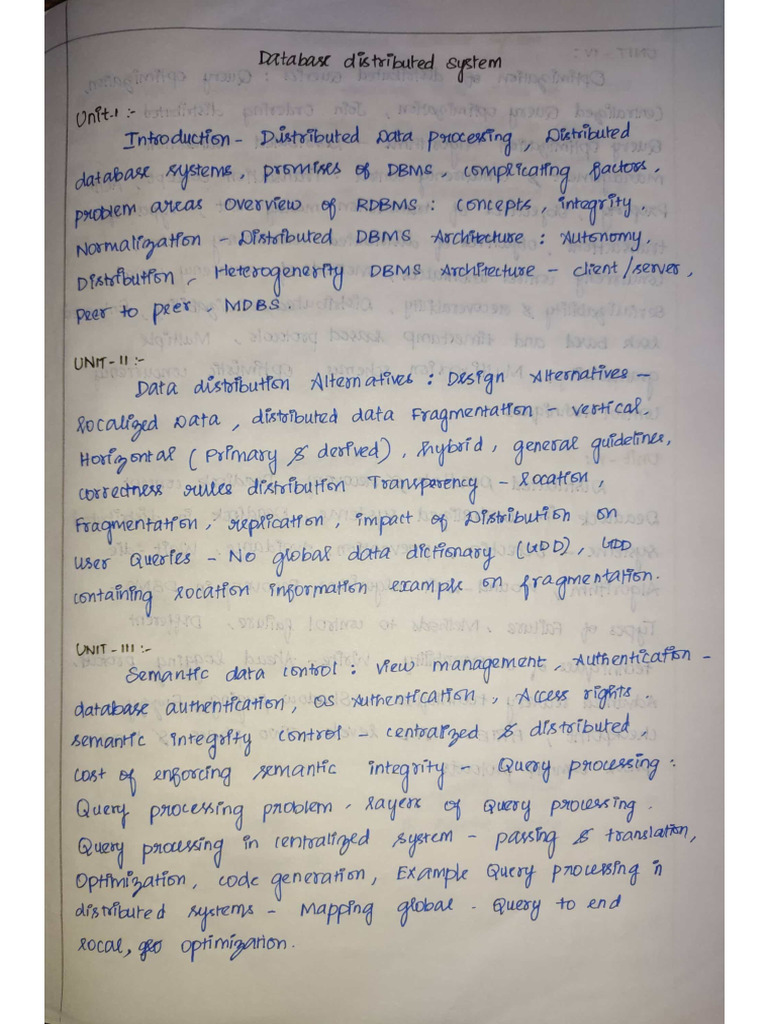 Database distributed system
Unit-1 :-
Introduction - Distributed Data processing, Distributed
database systems, promises of DBMS, complicating factors,
problem areas overview of RDBMS : concepts, integrity
Normalization - Distributed DBMS Architecture : Autonomy,
Distribution, Heterogenerity DBMS Architecture - client/server,
peer to peer, MDBS.
UNIT-II :-
Data distribution Alternatives : Design Alternatives -
localized Data, distributed data Fragmentation - vertical,
Horizontal (primary & derived), hybrid, general guidelines,
correctness rules distribution Transparency - location,
Fragmentation, replication, impact of Distribution on
user Queries - No global data dictionary (GDD), GDD
containing location information example on fragmentation.
UNIT-III :-
Semantic data control : view management, Authentication -
database authentication, OS Authentication, Access rights.
semantic integrity control - centralized & distributed,
cost of enforcing semantic integrity - Query processing :
Query processing problem, layers of Query processing.
Query processing in centralized system - passing & translation,
Optimization, code generation, Example Query processing in
distributed systems - Mapping global. Query to end
local, optimization.